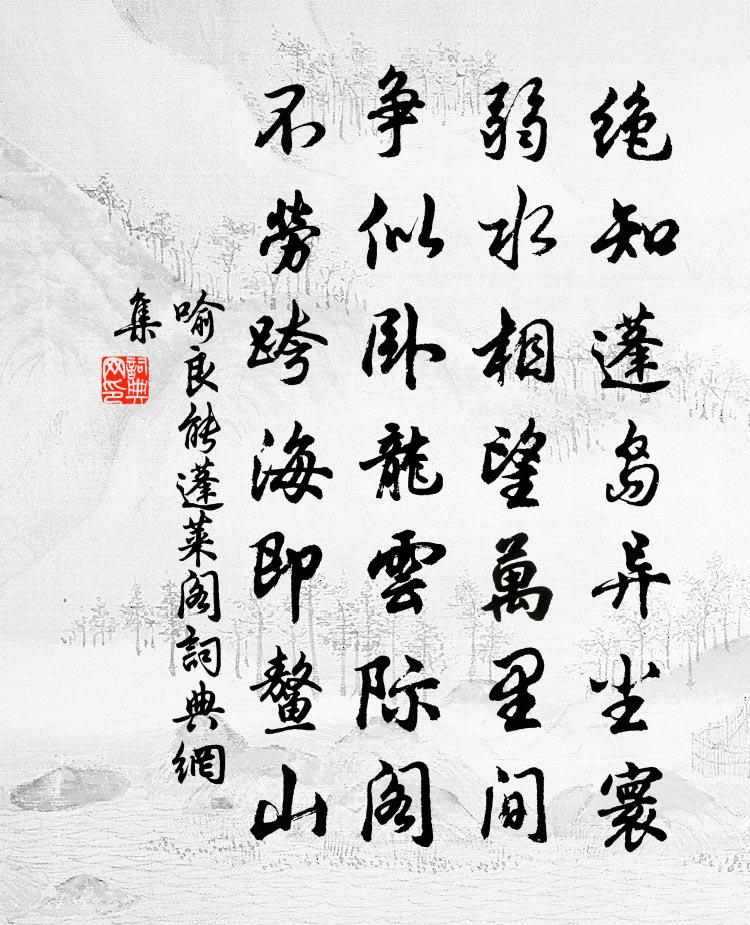 绝知蓬岛异尘寰
弱水相望萬里间
争似卧龍雲际阁
不劳跨海即鳌山
喻良能蓬莱阁詞典網
集
詞典
网印